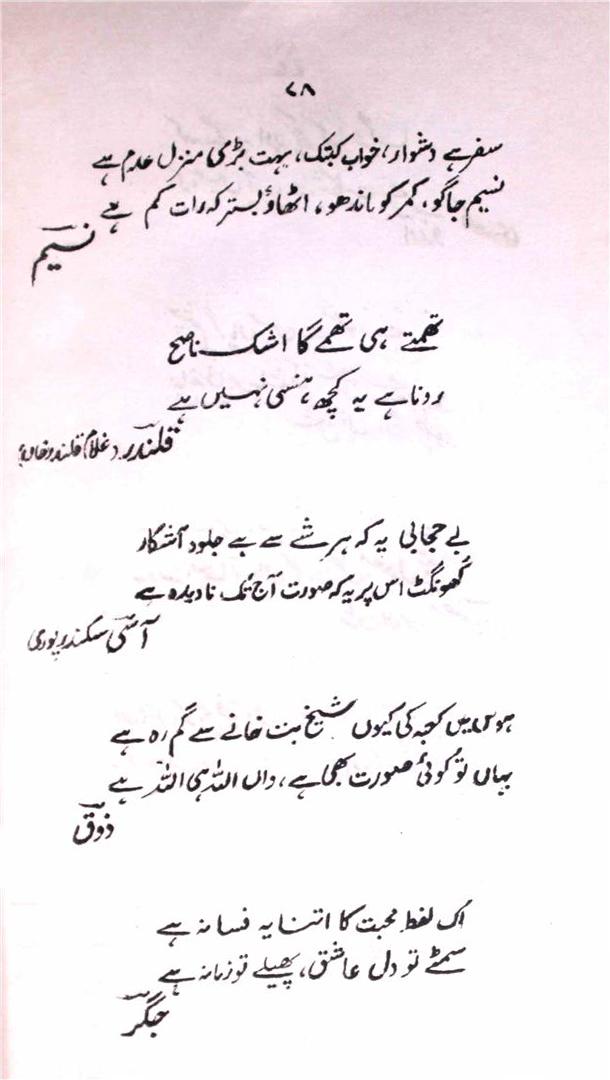 ۲۸
سفر ہے دشوار، خواب کبتک، بہت بڑی منزل عدم ہے
نسیم جاگو، کمر کو باندھو، اٹھاؤ بستر کہ رات کم ہے
نسیم
تھمتے ہی تھمے گا اشک ناصح
رونا ہے یہ کچھ ہنسی نہیں ہے
قلندر (غلام قلندر خاں)
بے حجابی یہ کہ ہر شے سے ہے جلوہ آشکار
گھونگٹ اس پر یہ کہ صورت آج تک نادیدہ ہے
آسی سکندرپوری
ہوس میں کعبہ کی کیوں شیخ بت خانے سے گم رہ ہے
یہاں تو کوئی صورت بھی ہے، واں اللہ ہی اللہ ہے
ذوق
اک لفظ محبت کا اتنا یہ فسانہ ہے
سمٹے تو دل عاشق، پھیلے تو زمانہ ہے
جگر